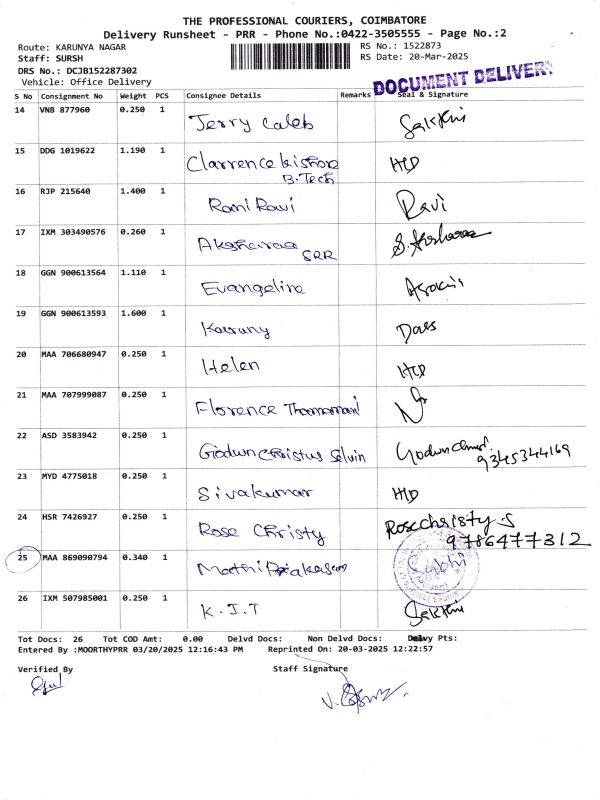 THE PROFESSIONAL COURIERS, COIMBATORE
Delivery Runsheet - PRR - Phone No.:0422-3505555 - Page No.:2
Route: KARUNYA NAGAR
RS No.: 1522873
Staff: SURSH
RS Date: 20-Mar-2025
DRS No.: DCJB152287302
Vehicle: Office Delivery
DOCUMENT DELIVERY
S No Consignment No Weight PCS Consignee Details Remarks Seal & Signature
14 VNB 877960 0.250 1 Jerry Caleb Sakthi
15 DDG 1019622 1.190 1 Clarrence kishore HD
B.Tech
16 RJP 215640 1.400 1 Rani Ravi Ravi
17 IXM 303490576 0.260 1 Aksharaa
SRR
18 GGN 900613564 1.110 1 Evangeline
19 GGN 900613593 1.600 1 Karuny
20 MAA 706680947 0.250 1 Helen HD
21 MAA 707999087 0.250 1 Florence
22 ASD 3583942 0.250 1 Godwin Christus Selvin
9345344169
23 MYD 4775018 0.250 1 Sivakumar HD
24 HSR 7426927 0.250 1 Rose Christy Rosechristy.S
9786477312
25 MAA 869090794 0.340 1 Mathi Prakasam Sakthi
26 IXM 507985001 0.250 1 K.I.T Sakthi
Tot Docs: 26 Tot COD Amt: 0.00 Delvd Docs: Non Delvd Docs: Delvy Pts:
Entered By :MOORTHYPRR 03/20/2025 12:16:43 PM Reprinted On: 20-03-2025 12:22:57
Verified By Staff Signature